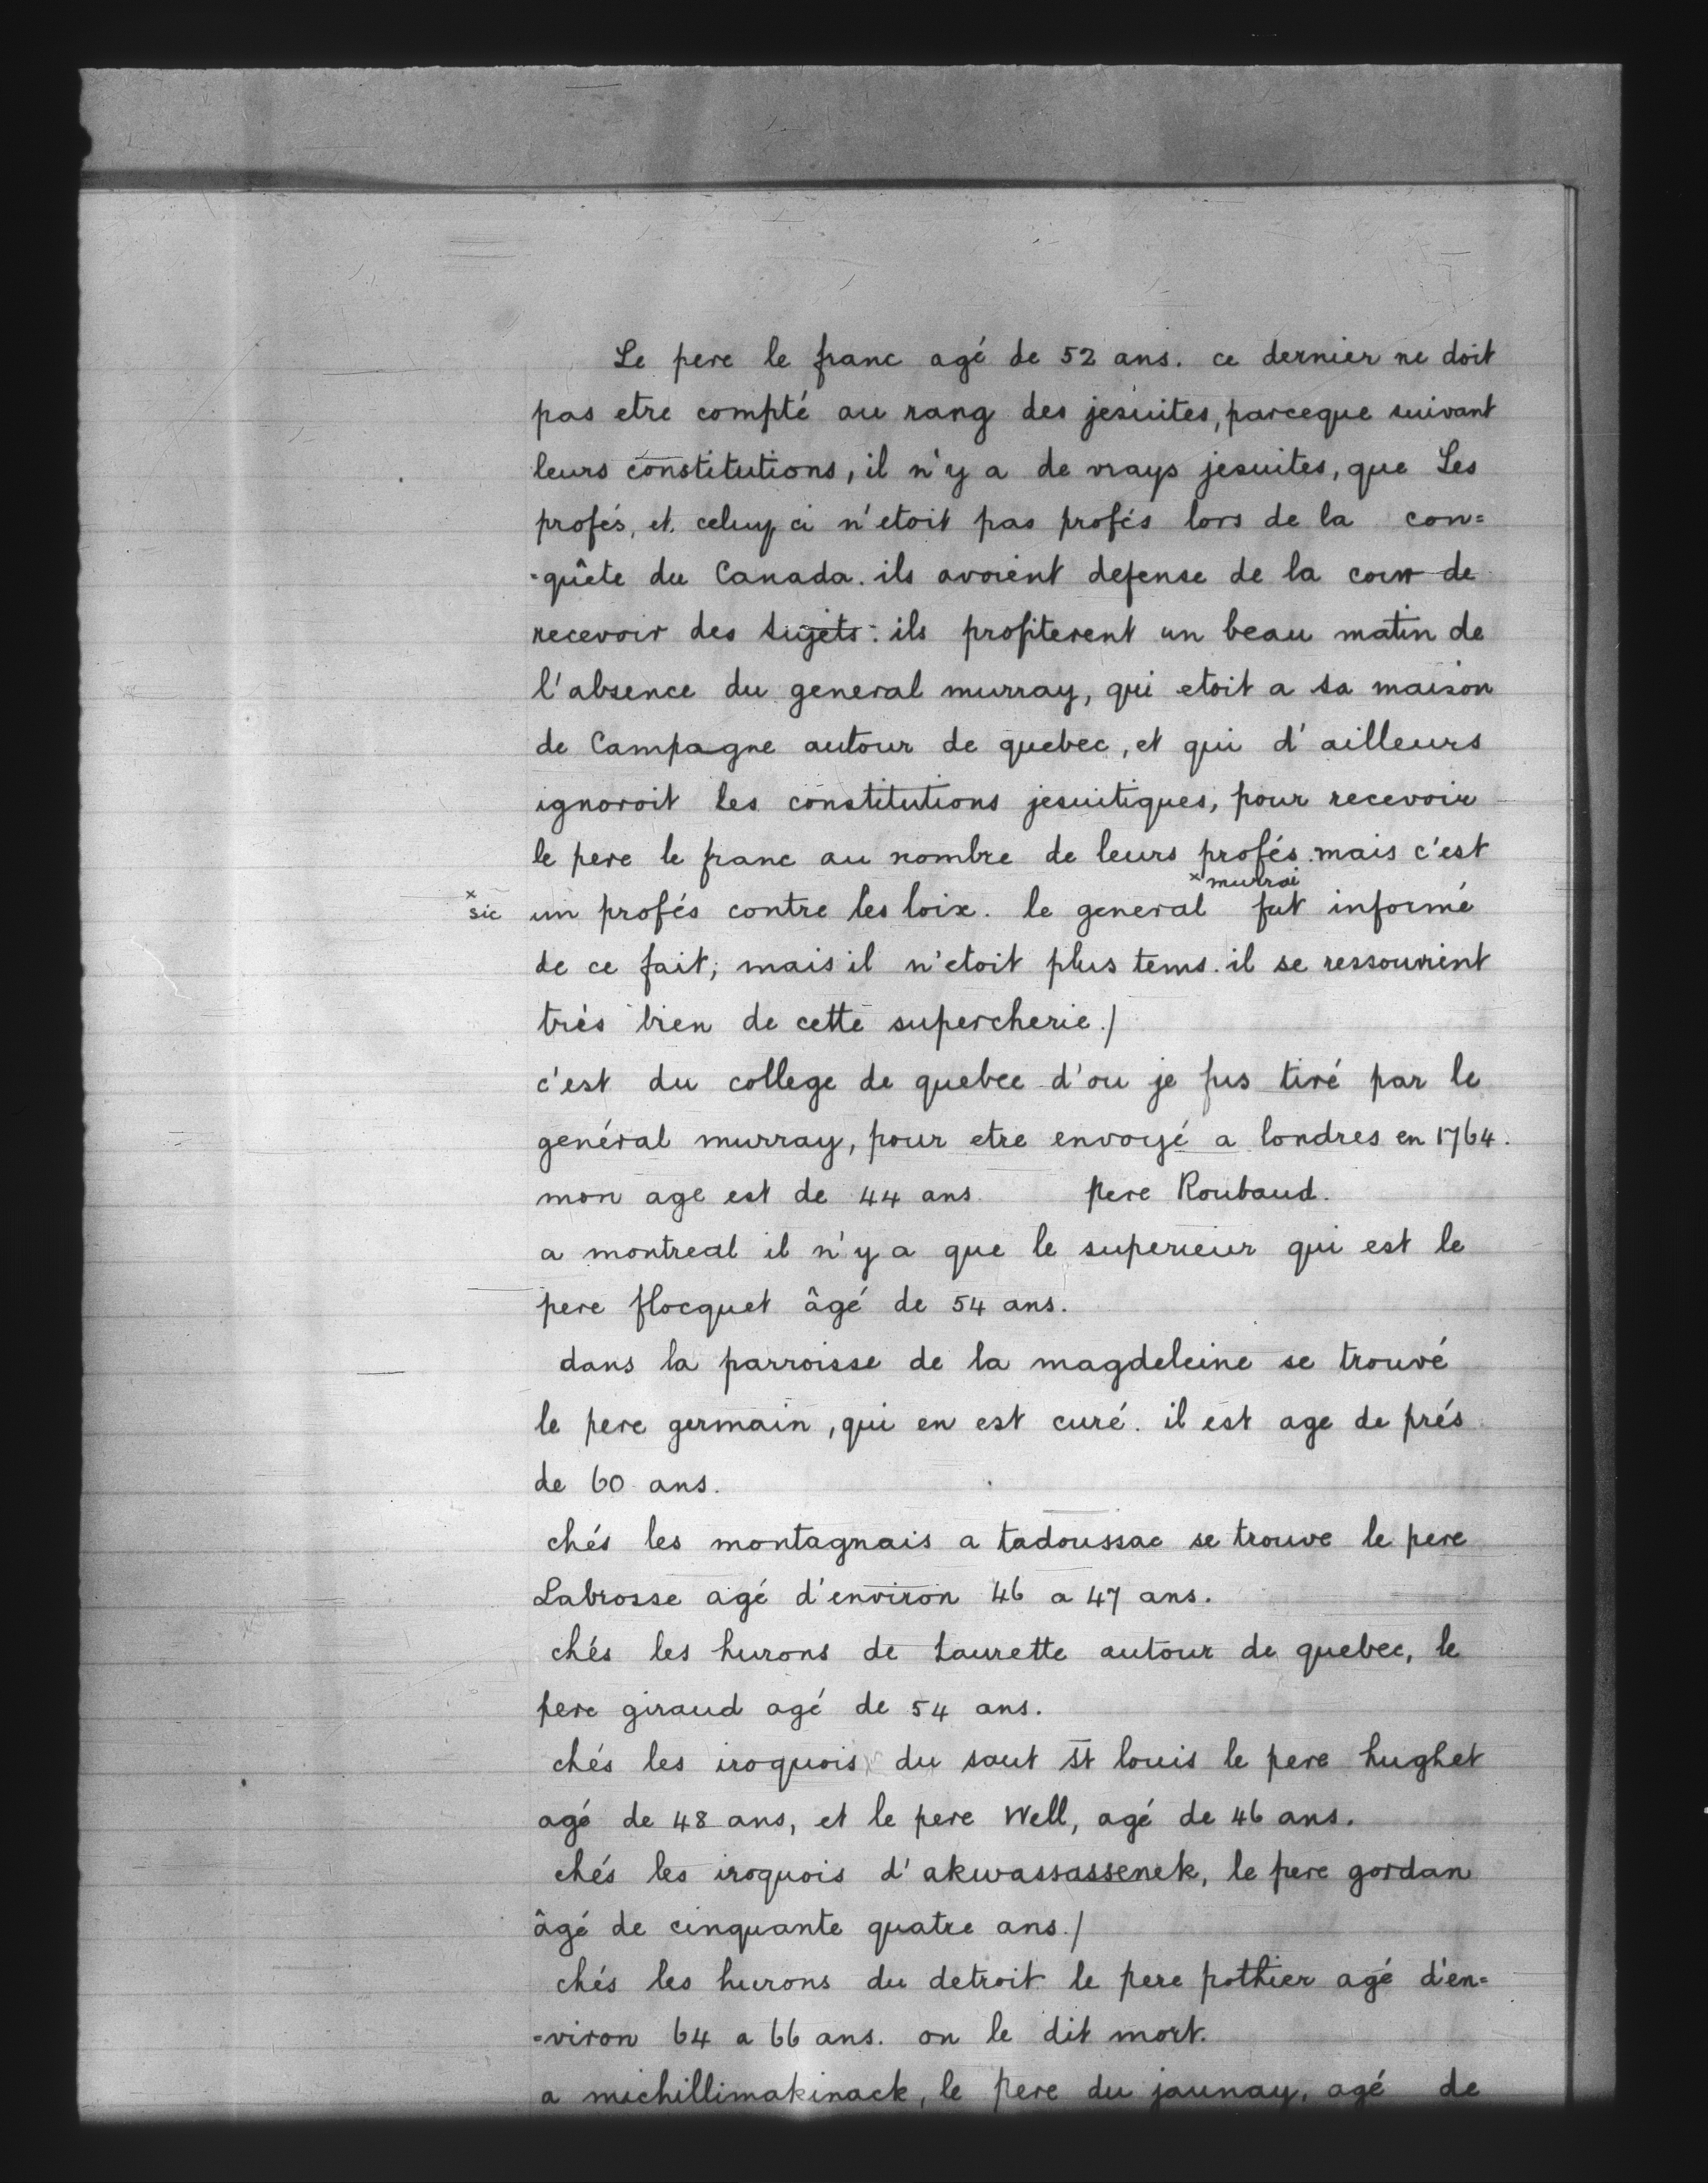 Le pere le franc agé de 52 ans. ce dernier ne doit
pas etre compté au rang des jesuites, parceque suivant
leurs constitutions, il n'y a de vrays jesuites, que Les
profés, et celuy ci n'etoit pas profés lors de la con=
=quête du Canada. ils avoient defense de la cour de
recevoir des sujets: ils profiterent un beau matin de
l'absence du general murray, qui etoit a sa maison
de Campagne autour de quebec, et qui d'ailleurs
ignoroit les constitutions jesuitiques, pour recevoir
le pere le franc au nombre de leurs profés. mais c'est
x murrai
x sic un profés contre les loix. le general fut informé
de ce fait; mais il n'etoit plus tems. il se ressouvient
très bien de cette supercherie./
c'est du college de quebec d'ou je fus tiré par le
genéral murray, pour etre envoyé a londres en 1764.
mon age est de 44 ans. pere Roubaud.
a montreal il n'y a que le superieur qui est le
pere flocquet âgé de 54 ans.
dans la parroisse de la magdeleine se trouvé
le pere germain, qui en est curé. il est age de prés
de 60 ans.
chés les montagnais a tadoussac se trouve le pere
Labrosse agé d'environ 46 a 47 ans.
chés les hurons de Laurette autour de quebec, le
pere giraud agé de 54 ans.
chés les iroquois du saut st louis le pere hughet
agé de 48 ans, et le pere Well, agé de 46 ans.
chés les iroquois d'akwassassenek, le pere gordan
âgé de cinquante quatre ans./
chés les hurons du detroit le pere pothier agé d'en=
=viron 64 a 66 ans. on le dit mort.
a michillimakinack, le pere du jaunay, agé de